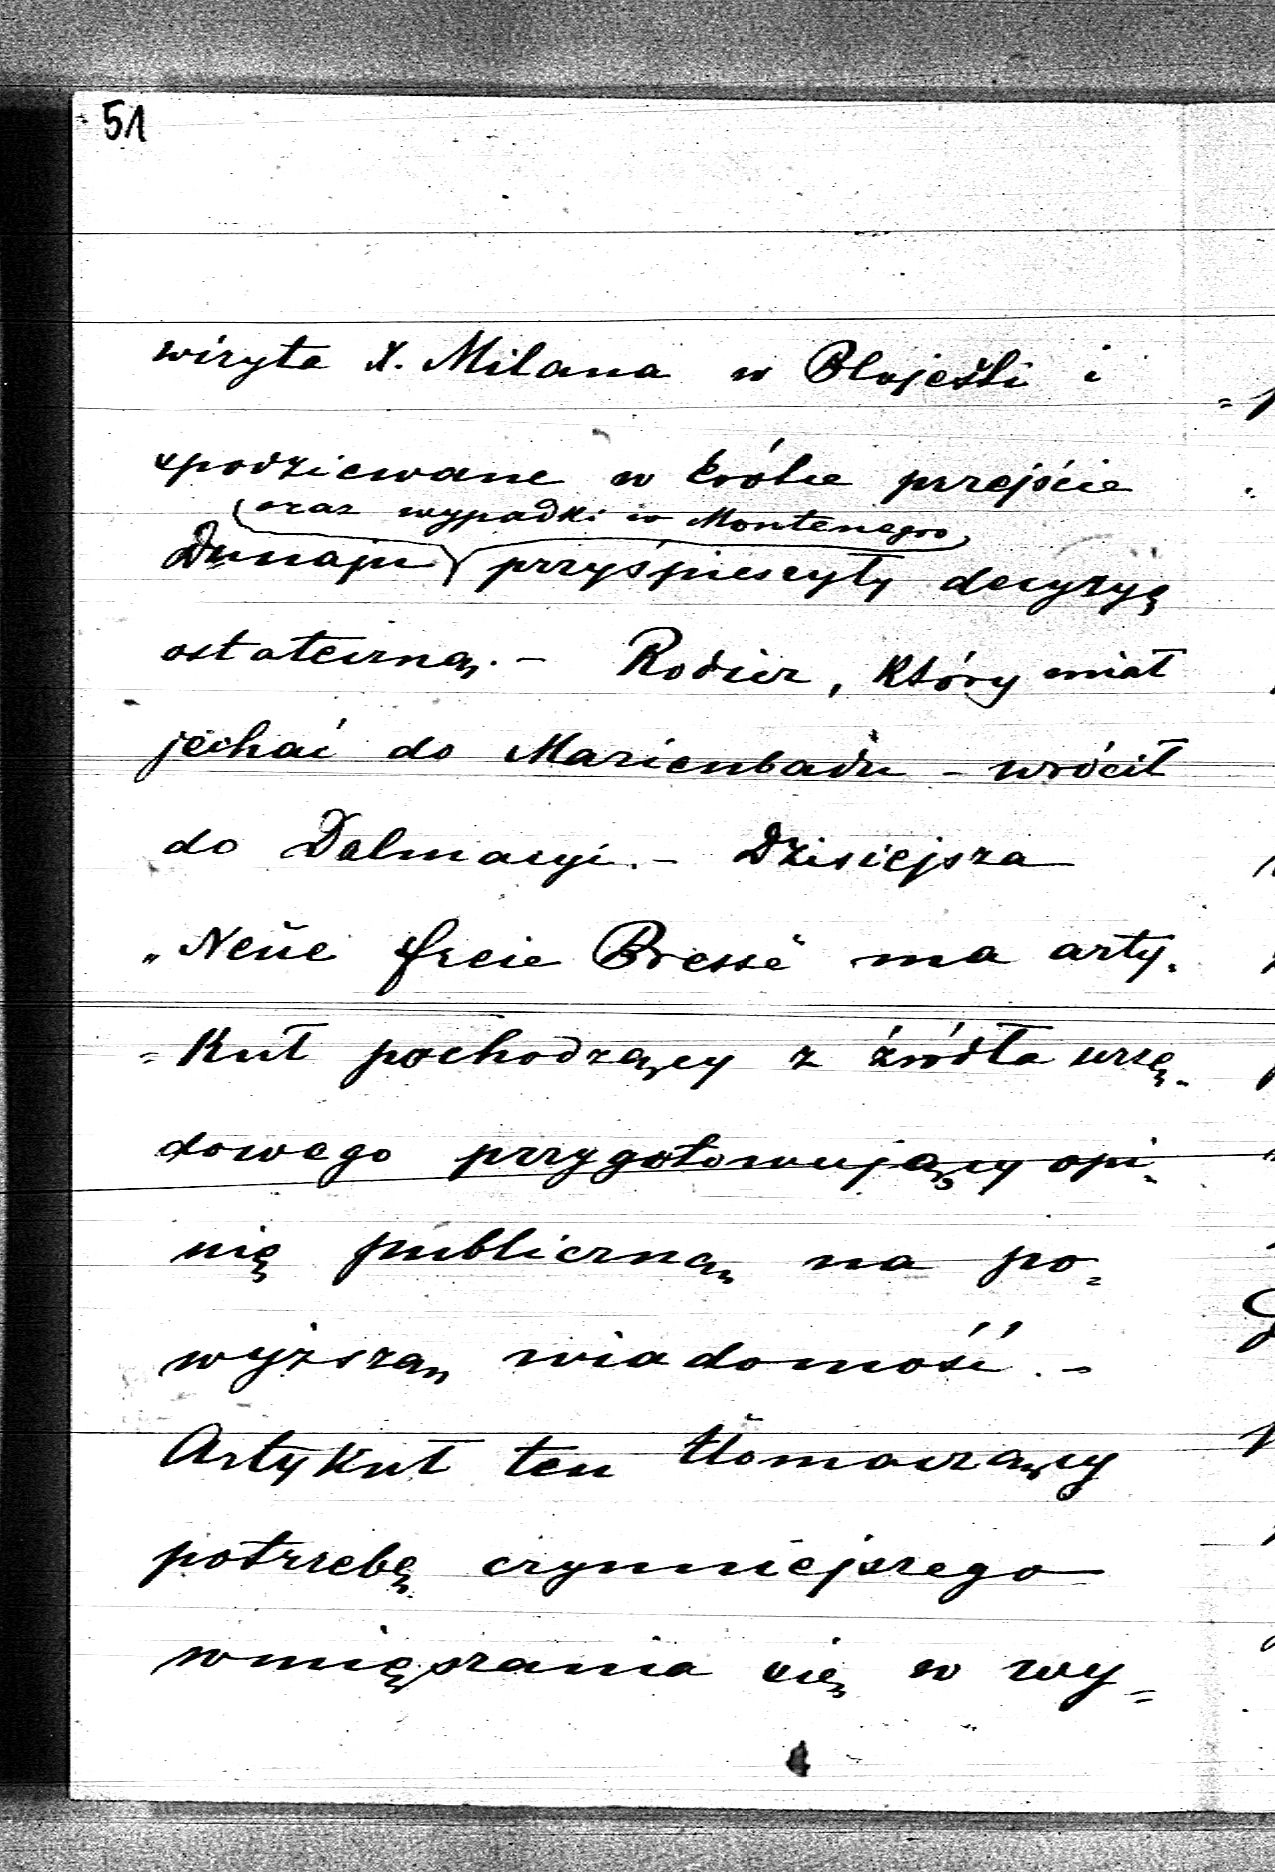 51
wizyta X. Milana w Plojeśti i
spodziewane w krótce przejście
(oraz wypadki w Montenegro)
Dunaju przyśpieszyły decyzyę
ostateczną. – Rodicz, który miał
jechać do Marienbadu – wrócił
do Dalmacyi. – Dzisiejsza
„Neüe freie Presse" ma arty-
=kuł pochodzący z źródła urzę-
dowego przygotowujący opi-
nię publiczną na po=
wyższą wiadomość. –
Artykuł ten tłomaczący
potrzebę czynniejszego
wmięszania się w wy=